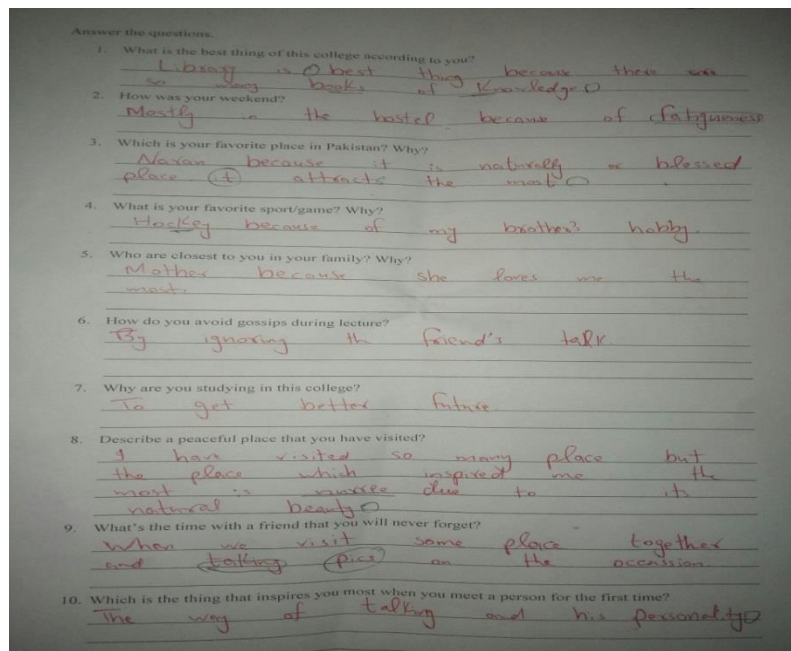 Answer the questions.
1. What is the best thing of this college according to you?
Library is best thing because there are
so many books of Knowledge
2. How was your weekend?
Mostly in the hostel because of fatigueness
3. Which is your favorite place in Pakistan? Why?
Naran because it is naturally blessed
place it attracts the most
4. What is your favorite sport/game? Why?
Hockey because of my brother's hobby.
5. Who are closest to you in your family? Why?
Mother because she loves me the
most.
6. How do you avoid gossips during lecture?
By ignoring th friend's talk
7. Why are you studying in this college?
To get better future.
8. Describe a peaceful place that you have visited?
I have visited so many place but
the place which inspired me the
most is due to its
natural beauty
9. What's the time with a friend that you will never forget?
When we visit some place together
and talking pics on the occassion.
10. Which is the thing that inspires you most when you meet a person for the first time?
The way of talking and his personality